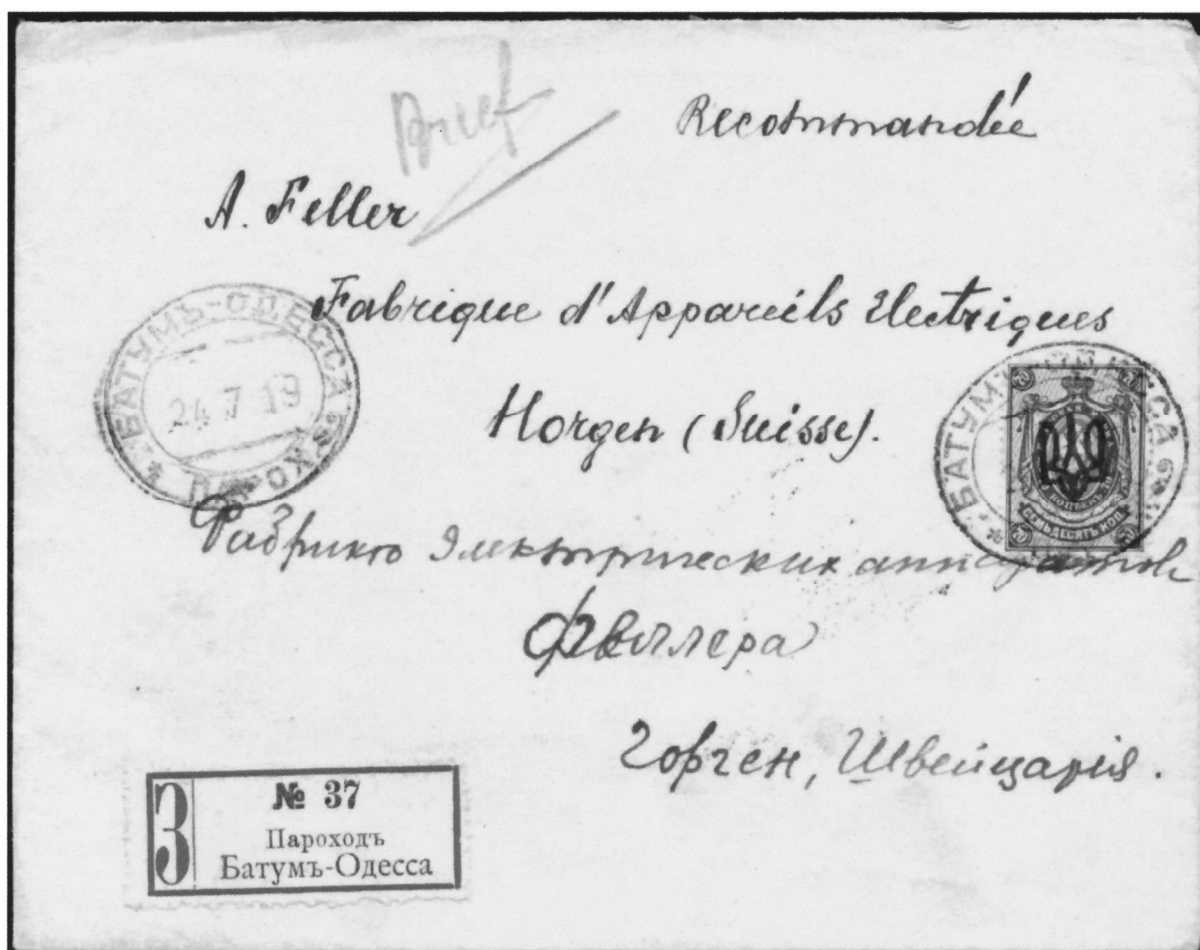 Brief
Recommandée
A. Feller
Fabrique d'Appareils Electriques
БАТУМЪ-ОДЕССА
24 7 19
ПАРОХ
Horgen (Suisse).
БАТУМЪ
СЕМЬДЕСЯТЬ КОП.
70 70
Фабрика Электрических аппаратовъ
Феллера
Горген, Швейцарія.
З
№ 37
Пароходъ
Батумъ-Одесса